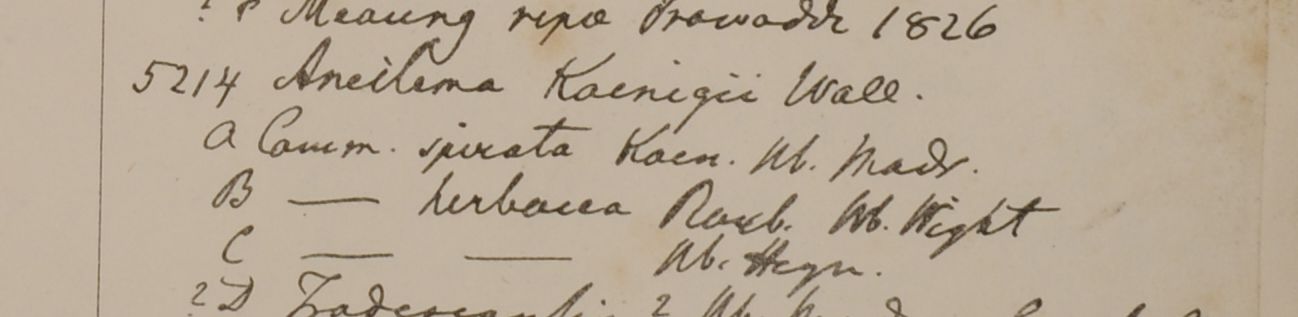 ? P Meaung ripæ Prowadde 1826
5214 Aneilema Koenigii Wall.
A Comm. spirata Koen. Hb. Madr.
B — herbacea Roxb. Hb. Wight
C — — Hb. Heyn.
? D Tradescantia ? Hb.